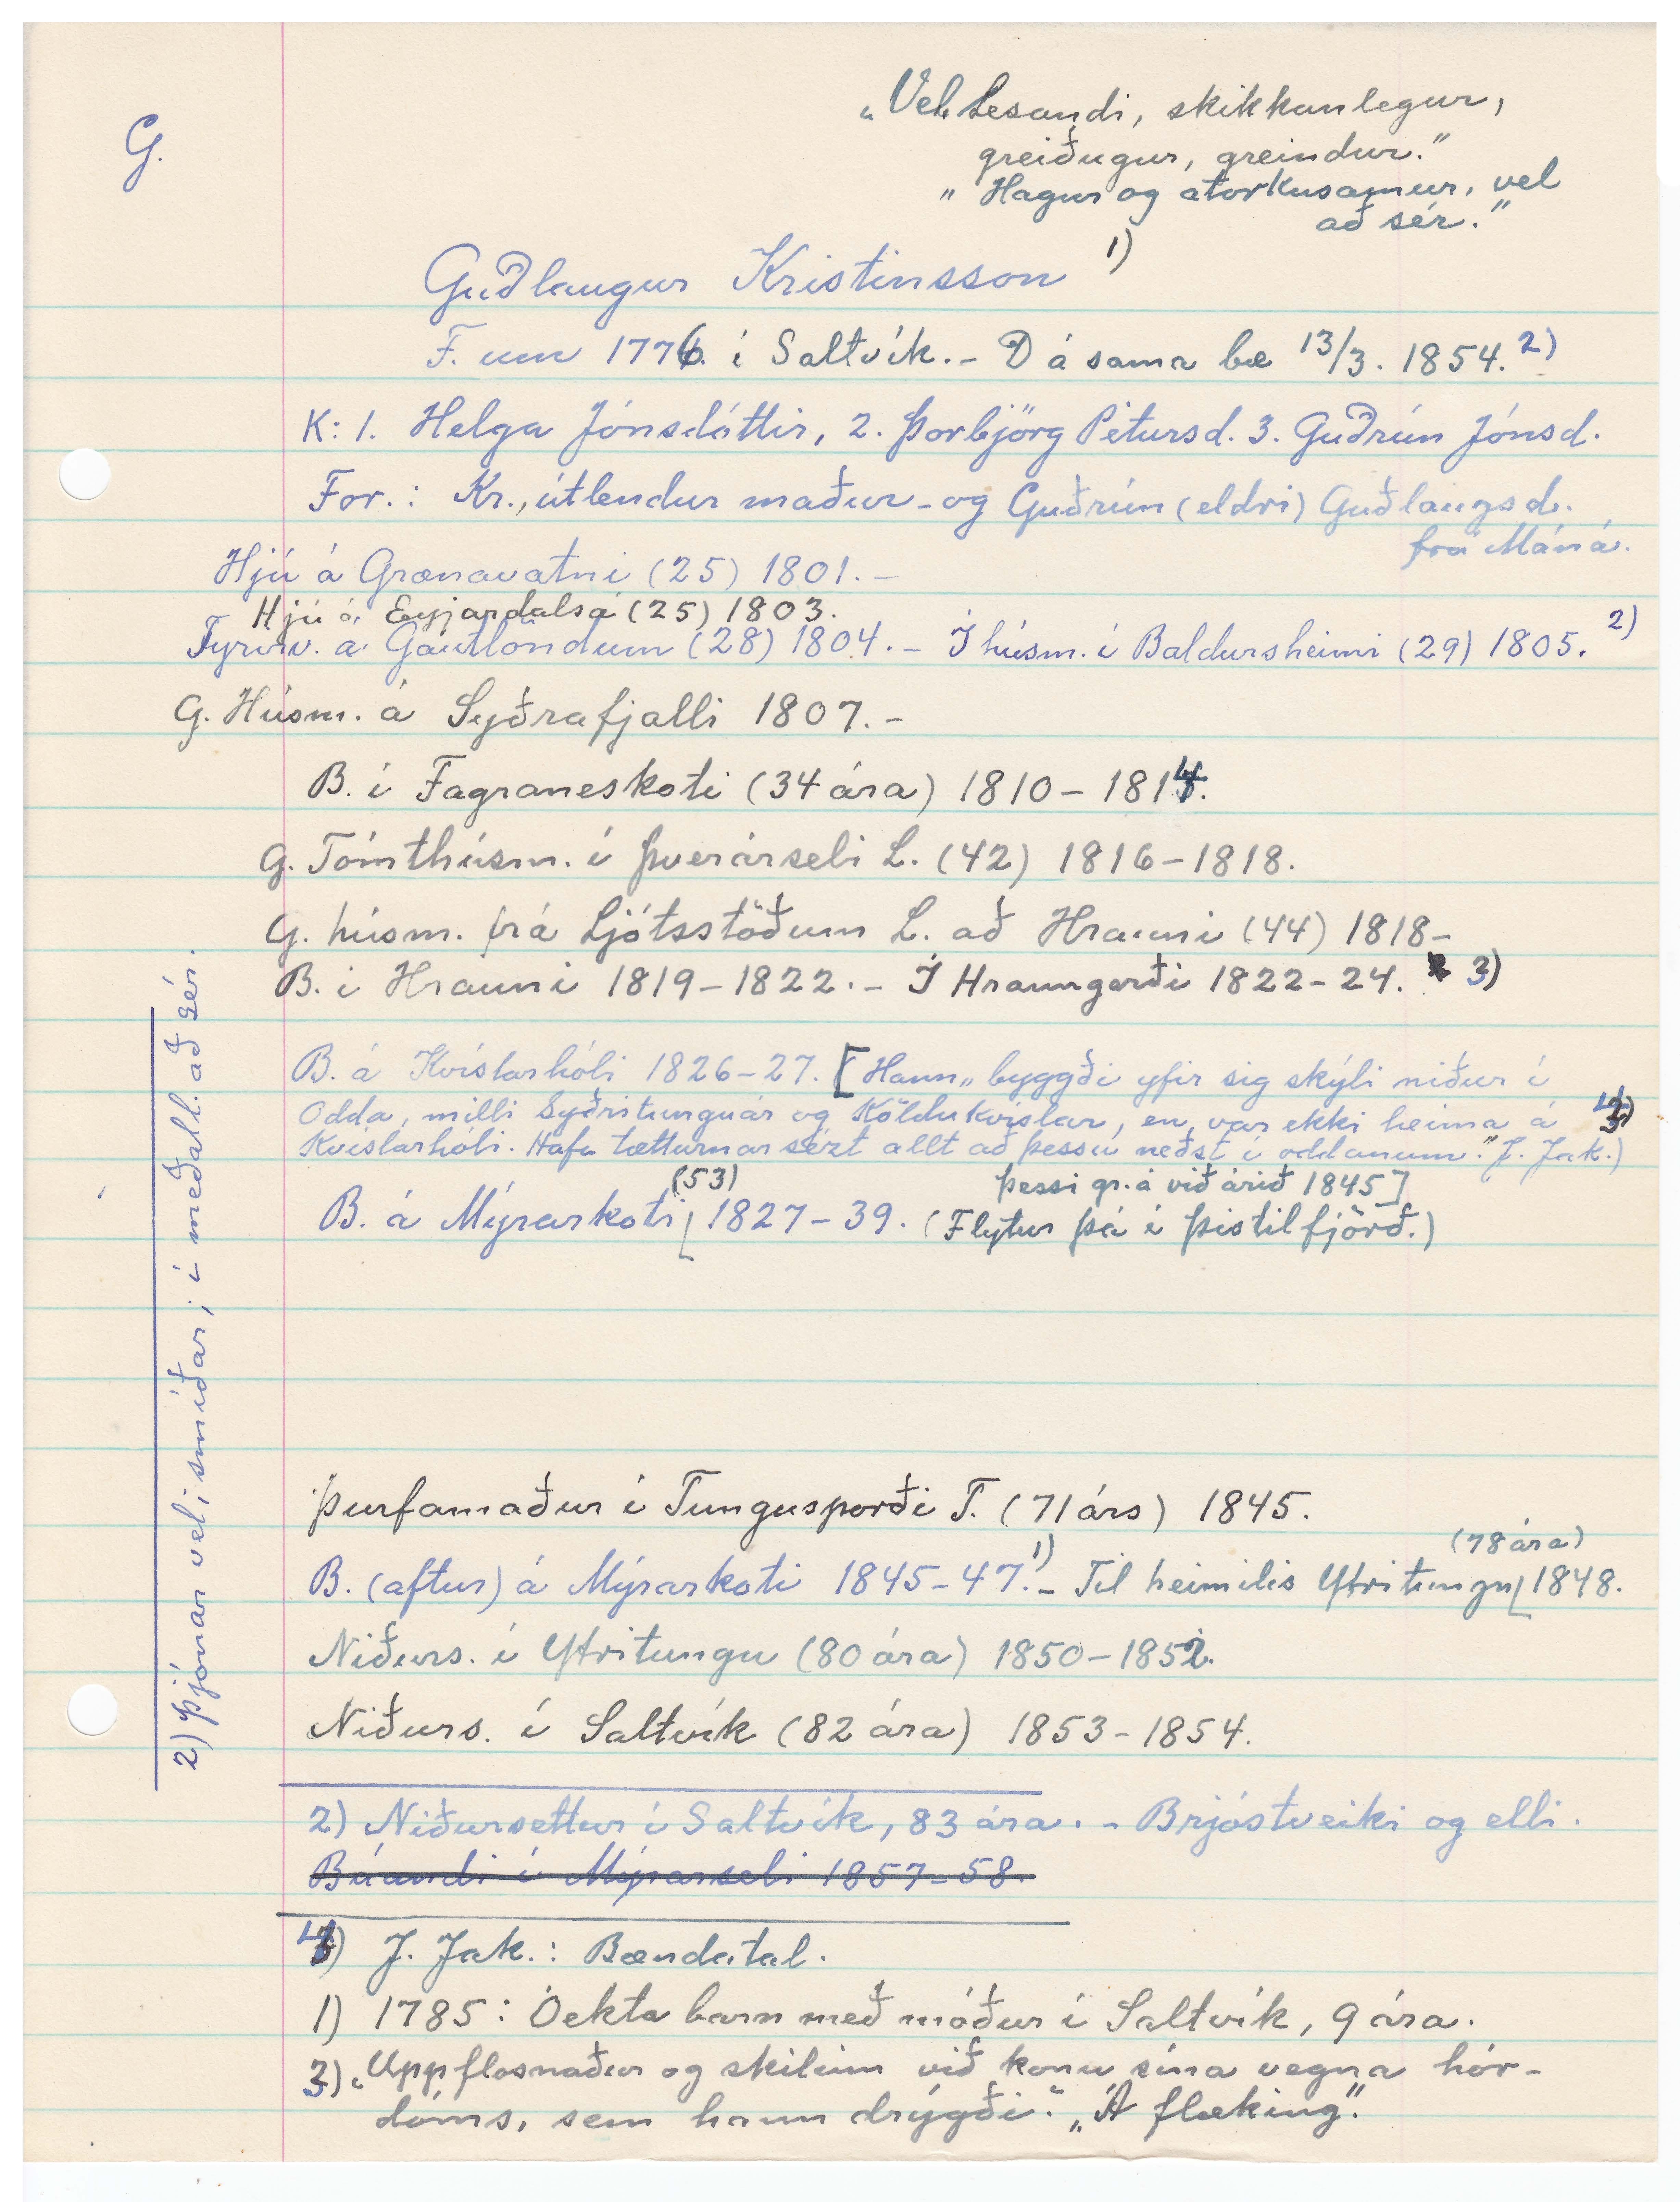 G.
„Vel lesandi, skikkanlegur,
greiðugur, greindur."
„Hagur og atorkusamur, vel
að sér."
Guðlaugur Kristinsson 1)
F. um 1776. í Saltvík. - D á sama bæ 13/3. 1854. 2)
K: 1. Helga Jónsdóttir, 2. Þorbjörg Pétursd. 3. Guðrún Jónsd.
For.: Kr., útlendur maður - og Guðrún (eldri) Guðlaugsd.
frá Máná.
Hjú á Grænavatni (25) 1801. -
Hjú á Eyjardalsá (25) 1803.
Fyrirv. á Gautlöndum (28) 1804. - Í húsm. í Baldursheimi (29) 1805. 2)
G. Húsm. á Syðrafjalli 1807. -
B. í Fagraneskoti (34 ára) 1810 - 1814.
G. Tómthúsm. í Þverárseli L. (42) 1816 - 1818.
G. húsm. frá Ljótsstöðum L. að Hrauni (44) 1818 -
B. í Hrauni 1819 - 1822. - Í Hraungerði 1822 - 24. 3)
B. á Kvíslarhóli 1826 - 27. [Hann „byggði yfir sig skýli niður í
Odda, milli Syðritunguár og Köldukvíslar, en var ekki heima á 4)
Kvíslarhóli. Hafa tætturnar sézt allt að þessu neðst í oddanum." J. Jak.)
þessi gr. á við árið 1845]
B. á Mýrarkoti (53) 1827 - 39. (Flytur þá í Þistilfjörð.)
Þurfamaður í Tungusporði T. (71 árs) 1845.
B. (aftur) á Mýrarkoti 1845 - 47. 1) - Til heimilis Ytritungu (78 ára) 1848.
Niðurs. í Ytritungu (80 ára) 1850 - 1852.
Niðurs. í Saltvík (82 ára) 1853 - 1854.
2) Niðursettur í Saltvík, 83 ára. - Brjóstveiki og elli.
Búandi í Mýrarseli 1857 - 58.
4) J. Jak.: Bændatal.
1) 1785: Óekta barn með móður í Saltvík, 9 ára.
3) „Uppflosnaður og skilinn við konu sína vegna hór-
dóms, sem hann drýgði." „Á flæking."
2) Þjónar vel, smiðar; í meðall. að sér.